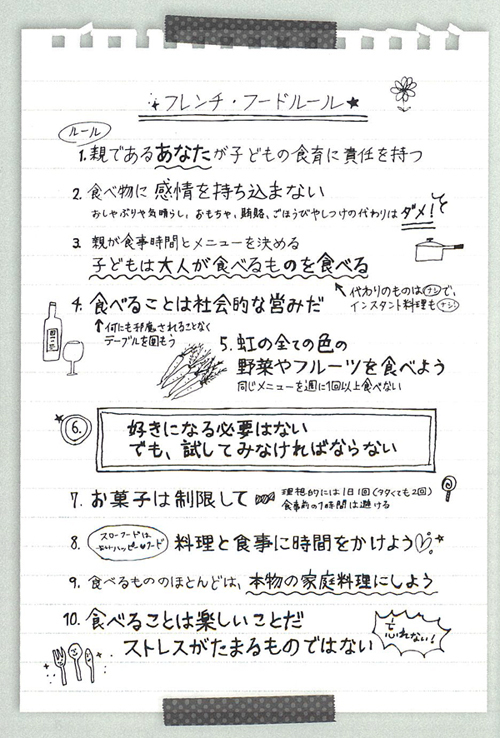 フレンチ・フードルール
ルール
1. 親であるあなたが子どもの食育に責任を持つ
2. 食べ物に感情を持ち込まない
おしゃぶりや気晴らし、おもちゃ、賄賂、ごほうびやしつけの代わりはダメ!
3. 親が食事時間とメニューを決める
子どもは大人が食べるものを食べる
代わりのものはナシで、
インスタント料理もナシ!
4. 食べることは社会的な営みだ
何にも邪魔されることなく
テーブルを囲もう
5. 虹の全ての色の
野菜やフルーツを食べよう
同じメニューを週に1回以上食べない
6. 好きになる必要はない
でも、試してみなければならない
7. お菓子は制限して
理想的には1日1回(多くても2回)
食事前の1時間は避ける
8. スローフードは
ハッピーフード
料理と食事に時間をかけよう
9. 食べるもののほとんどは、本物の家庭料理にしよう
10. 食べることは楽しいことだ
ストレスがたまるものではない
忘れない!